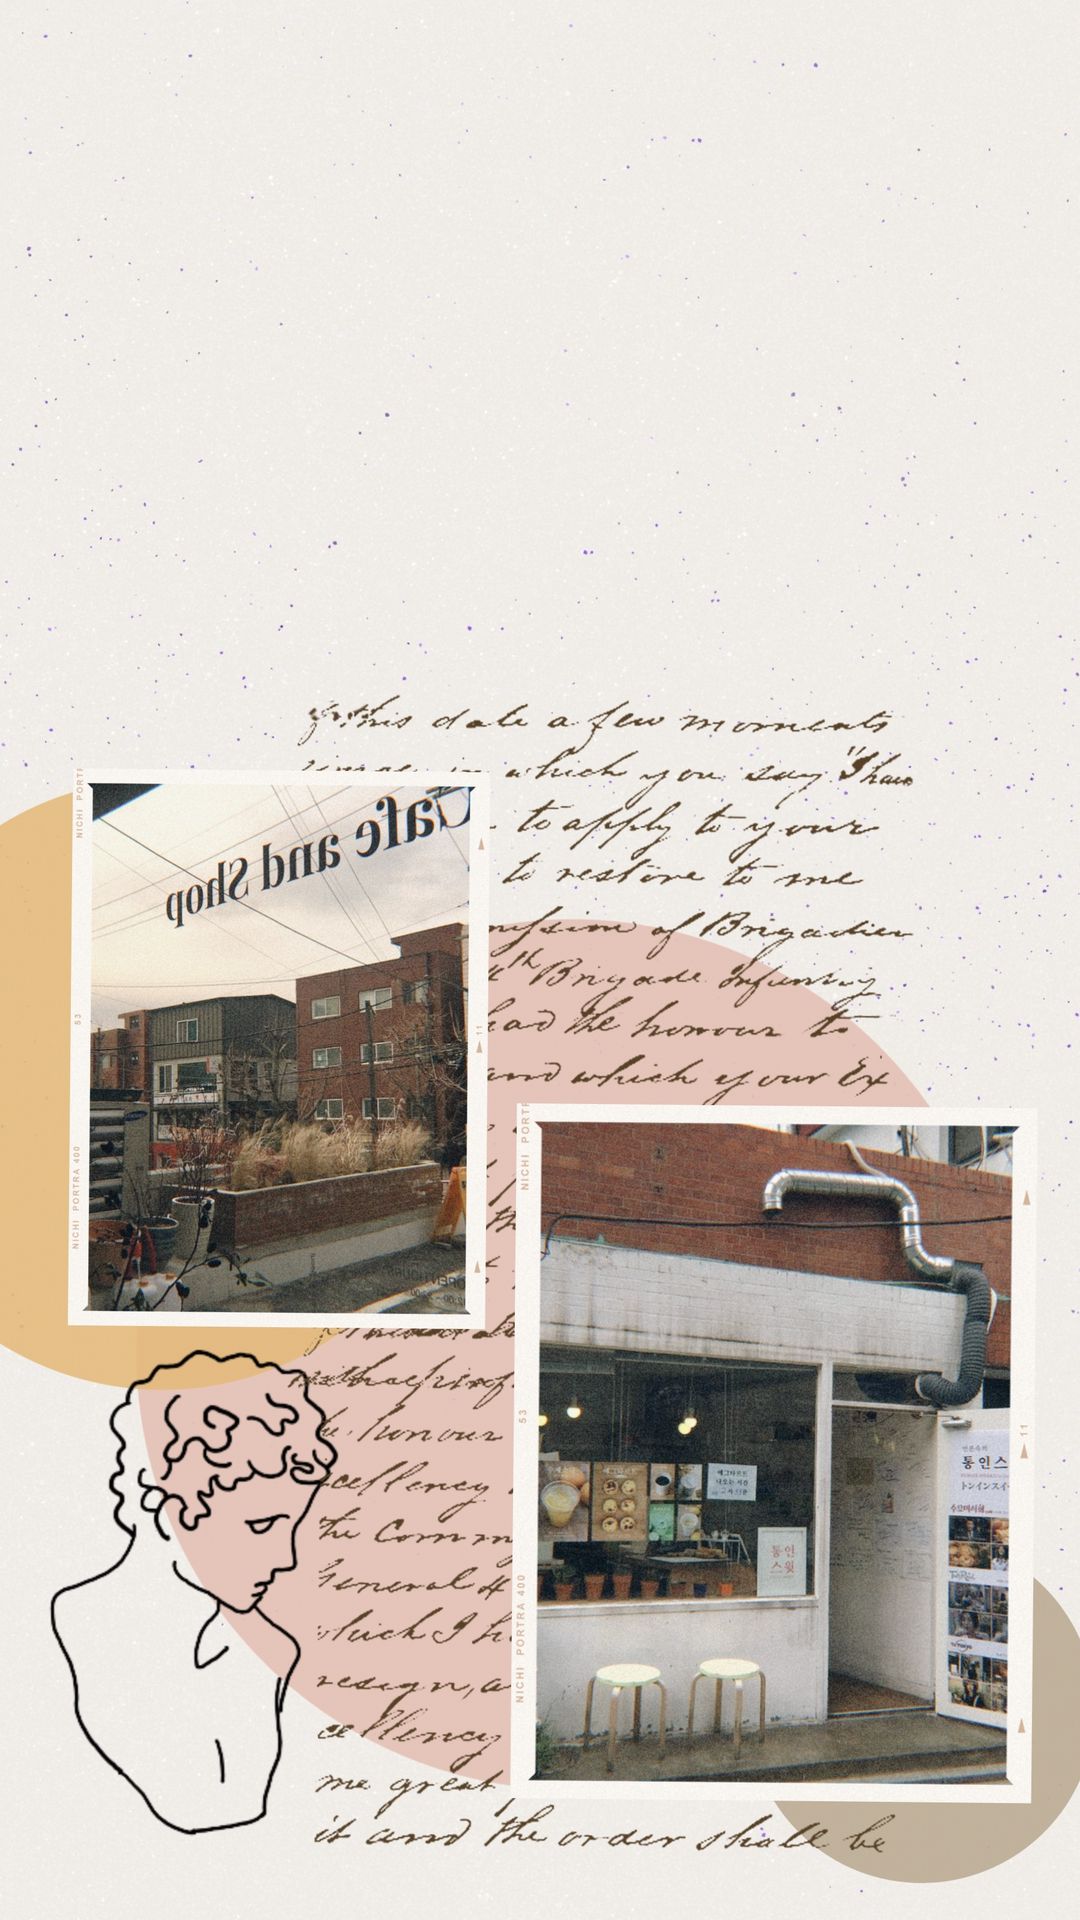 this date a few moments
in which you say "I have
to apply to your
to restore to me
of Brigadier
4th Brigade Infantry
had the honour to
and which your Ex
NICHI PORTRA
53
NICHI PORTRA 400
11
Cafe and Shop
the
honour
cellency
the Comm
General H
which I h
resign, a
cellency
me great
it and the order shall be
NICHI PORTR
53
NICHI PORTRA 400
11
에그타르트
나오는 시간
통인
스윗
통인스
トンインスイ